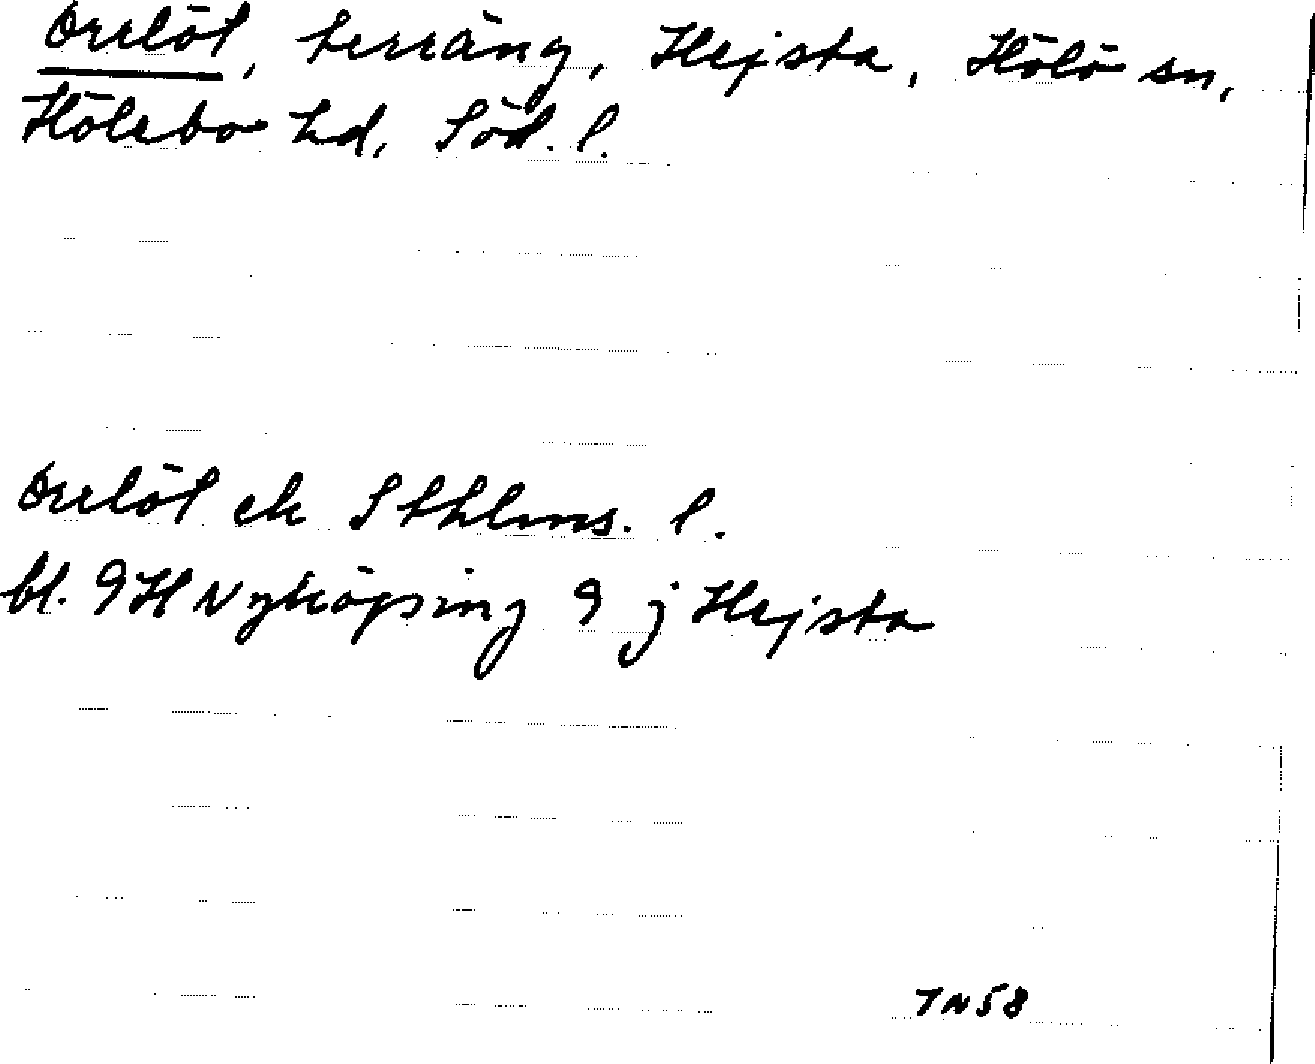 Orrlöt, terräng, Hejsta, Hölö sn,
Hölebo hd, Söd. l.
Orrlöt ek Sthlms. l.
bl. 9H Nyköping 9 j Hejsta
TN58